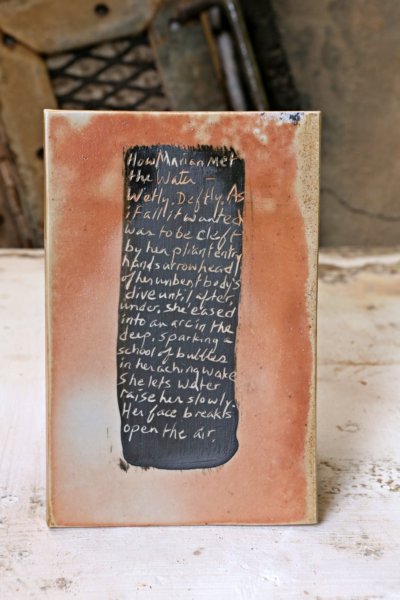 How Marian Met
the Water –
Wetly, Deftly. As
if all it wanted
was to be cleft
by her pliant entry
hands arrowhead
of her unbent body's
dive until after,
under, she eased
into an arc in the
deep, sparking a
school of bubbles
in her aching wake
She lets water
raise her slowly.
Her face breaks
open the air.